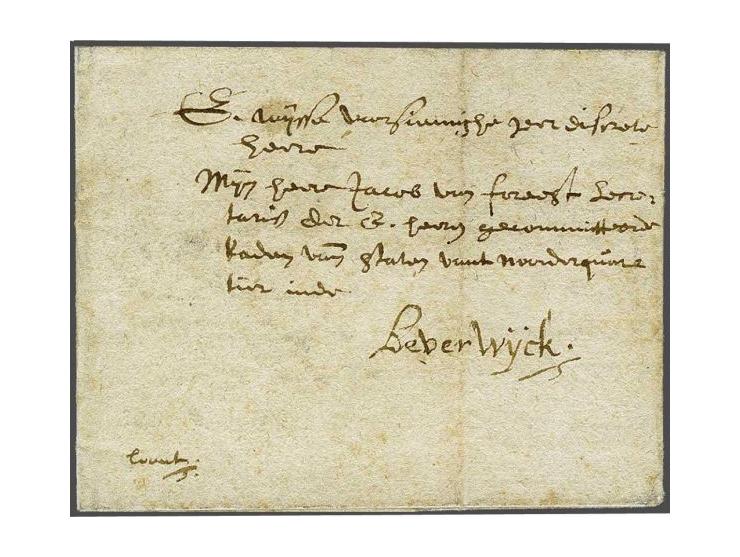 E. wijsse voorsinnighe zeer discrete
heere
Mijn heere Jacob van foreest Secre-
taris der E. heern gecommitteerde
Raden vann staten vant noorderquar
tier inde
beverwijck.